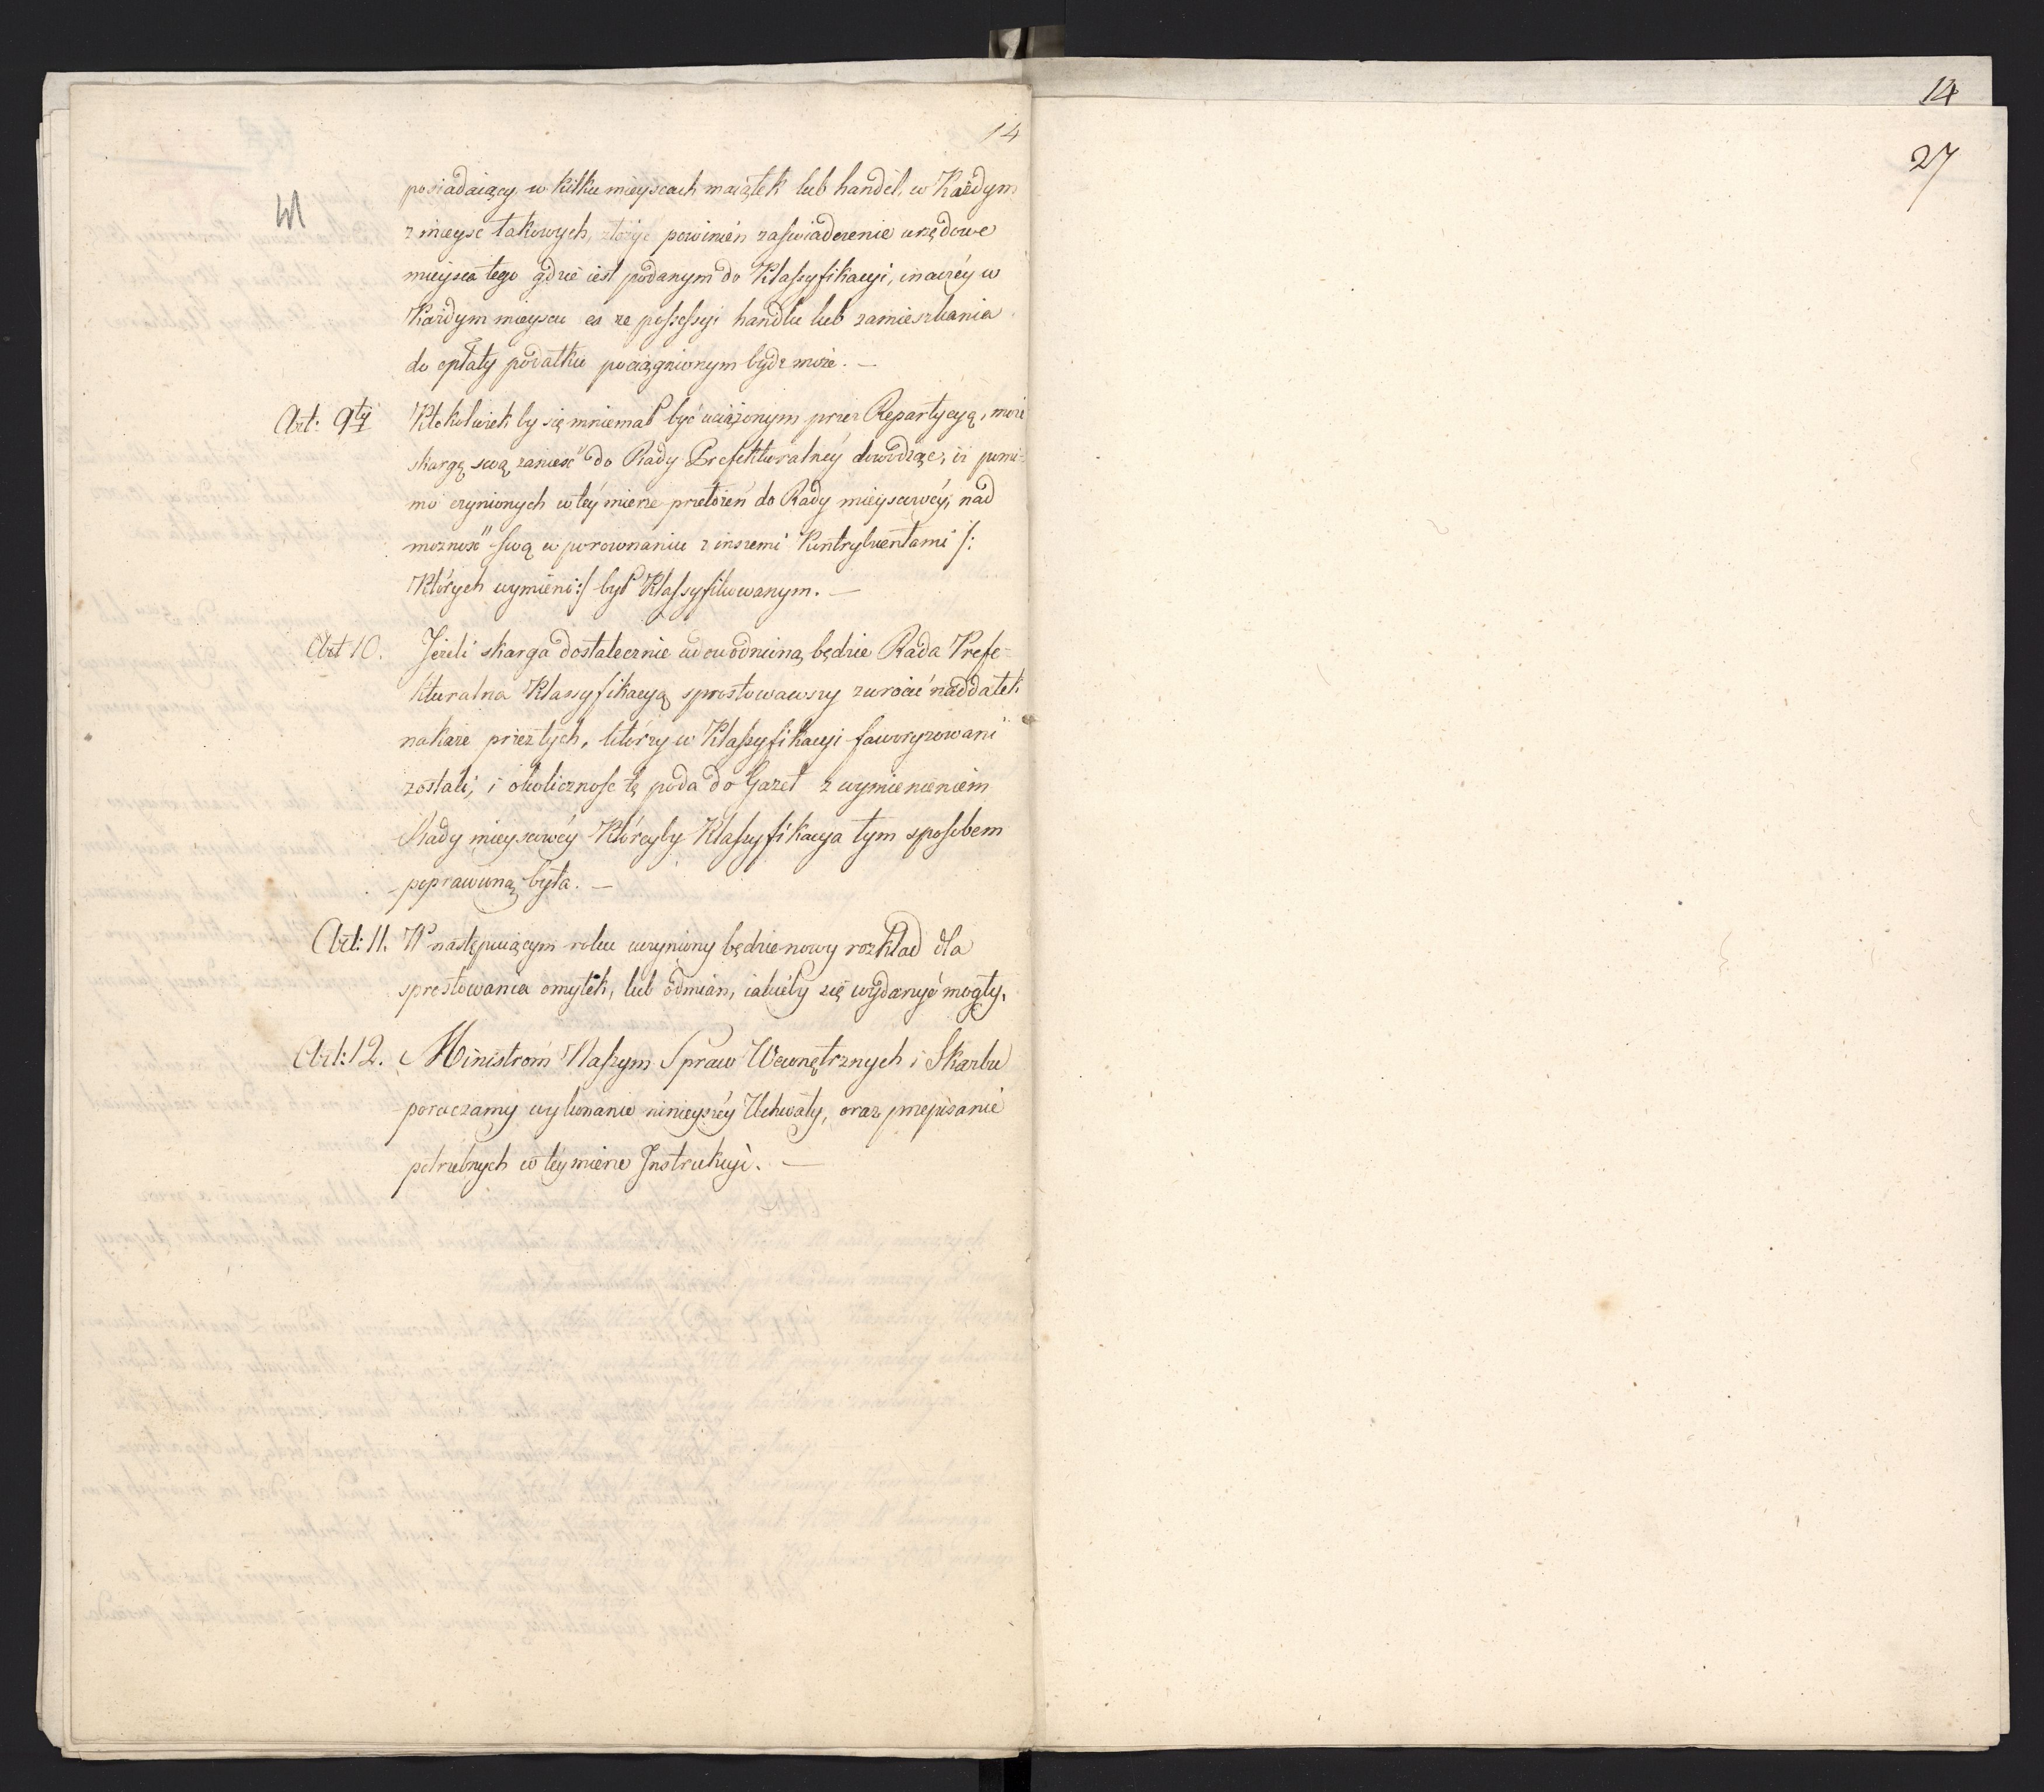 14
posiadaiący w kilku mieyscach maiątek lub handel, w Każdym
z mieysc takowych, złożyć powinien zaświadczenie urzędowe
mieysca tego gdzie iest podanym do Klassyfikacyi, inaczéy w
Każdym mieyscu co ze possessyi handlu lub zamieszkania
do opłaty podatku pociągnionym bydz może. —
Art: 9ty Ktokolwiek by się mniemał być uciążonym przez Repartycyą, może
skargę swą zanieść do Rady Prefekturalnéy dowodząc, iż pomi-
mo czynionych w téy mierze przełożeń do Rady mieyscowéy, nad
możność swą w porownaniu z inszemi Kontrybuentami /:
Których wymieni :/ był Klassyfikowanym. —
Art 10. Jeżeli skarga dostatecznie udowodnioną będzie Rada Prefe-
kturalna Klassyfikacyą sprostowawszy zwrócić naddatek
nakaże przez tych, którzy w Klassyfikacyi faworyzowani
zostali, i okoliczność tę poda do Gazet z wymienieniem
Rady mieyscowéy Któreyby Klassyfikacya tym sposobem
poprawioną była. —
Art: 11. W następuiącym roku uczyniony będzie nowy rozkład dla
sprostowania omyłek, lub odmian, iakieby się wydarzyć mogły,
Art: 12. Ministrom Naszym Spraw Wewnętrznych i Skarbu
poruczamy wykonanie ninieyszéy Uchwały, oraz przepisanie
potrzebnych w téy mierze Instrukcyi. —
14
27